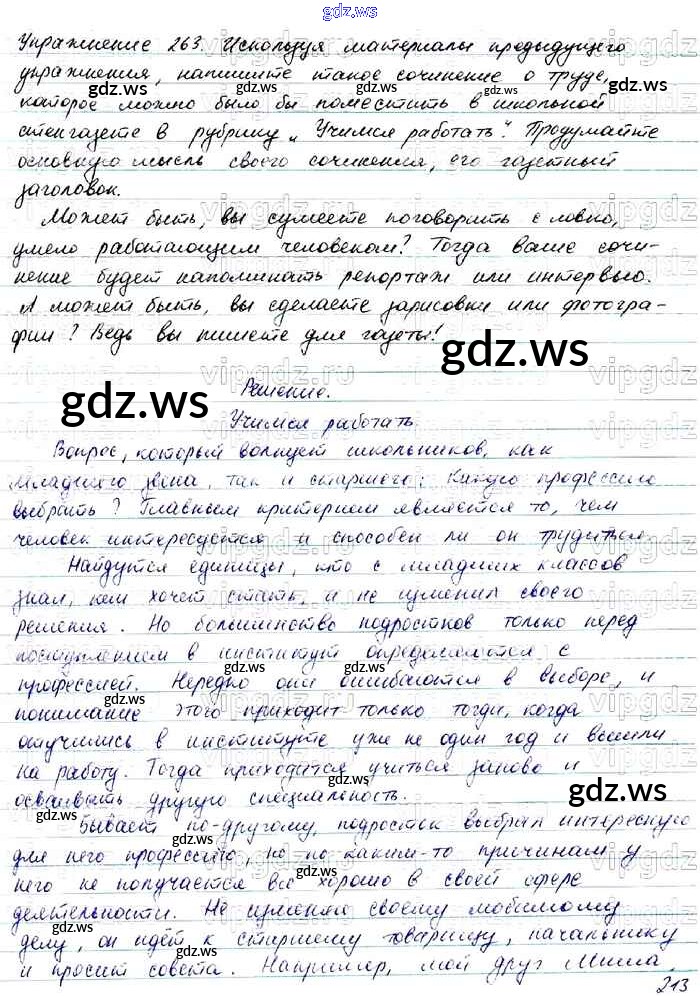 gdz.ws
Упражнение 263. Используя материалы предыдущего
упражнения, напишите такое сочинение о труде,
которое можно было бы поместить в школьной
стенгазете в рубрику „Учимся работать". Продумайте
основную мысль своего сочинения, его газетный
заголовок.
Может быть, вы сумеете поговорить с ловко,
умело работающим человеком? Тогда ваше сочи-
нение будет напоминать репортаж или интервью.
А может быть, вы сделаете зарисовки или фотогра-
фии? Ведь вы пишете для газеты!
Решение.
Учимся работать.
Вопрос, который волнует школьников, как
младшего звена, так и старшего: Какую профессию
выбрать? Главным критерием является то, чем
человек интересуется и способен ли он трудиться.
Найдутся единицы, кто с младших классов
знал, кем хочет стать, и не изменил своего
решения. Но большинство подростков только перед
поступлением в институт определяются с
профессией. Нередко они ошибаются в выборе, и
понимание этого приходит только тогда, когда
отучились в институте уже не один год и вышли
на работу. Тогда приходится учиться заново и
осваивать другую специальность.
Бывает по-другому, подросток выбрал интересную
для него профессию, но по каким-то причинам у
него не получается всё хорошо в своей сфере
деятельности. Не изменяя своему любимому
делу, он идёт к старшему товарищу, начальнику
и просит совета. Например, мой друг Миша
213